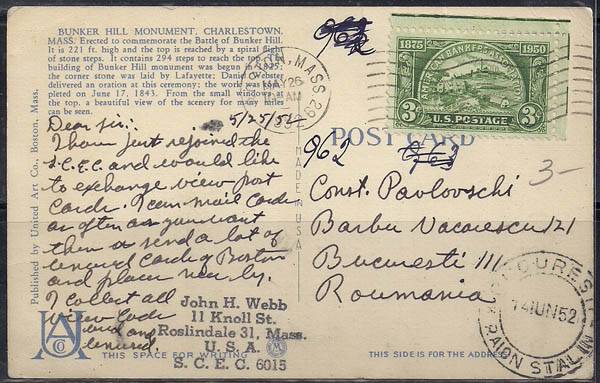 BUNKER HILL MONUMENT, CHARLESTOWN,
MASS. Erected to commemorate the Battle of Bunker Hill.
It is 221 ft. high and the top is reached by a spiral flight
of stone steps. It contains 294 steps to reach the top. The
building of Bunker Hill monument was begun in 1825;
the corner stone was laid by Lafayette; Daniel Webster
delivered an oration at this ceremony; the work was com-
pleted on June 17, 1843. From the small windows at
the top, a beautiful view of the scenery for many miles
can be seen.
Published by United Art Co., Boston, Mass.
5/25/52
Dear Sir:
I have just rejoined the
S.C.E.C and would like
to exchange view post
cards. I can mail cards
as often as you want
them & send a lot of
Cards of Boston
and places near by.
I collect all
view cards
and any
John H. Webb
11 Knoll St.
Roslindale 31, Mass.
U. S. A.
S. C. E. C. 6015
UA Co
THIS SPACE FOR WRITING
MADE IN USA
MASS. 29
MAY 26
AM
1952
1875 1950
AMERICAN BANKERS ASSOCIATION
3¢ U.S. POSTAGE 3¢
POST CARD
962
3-
Const. Pavlovschi
Barbu Vacarescu 121
Bucuresti III
Roumania
14 IUN 52
RAION STALIN
THIS SIDE IS FOR THE ADDRESS